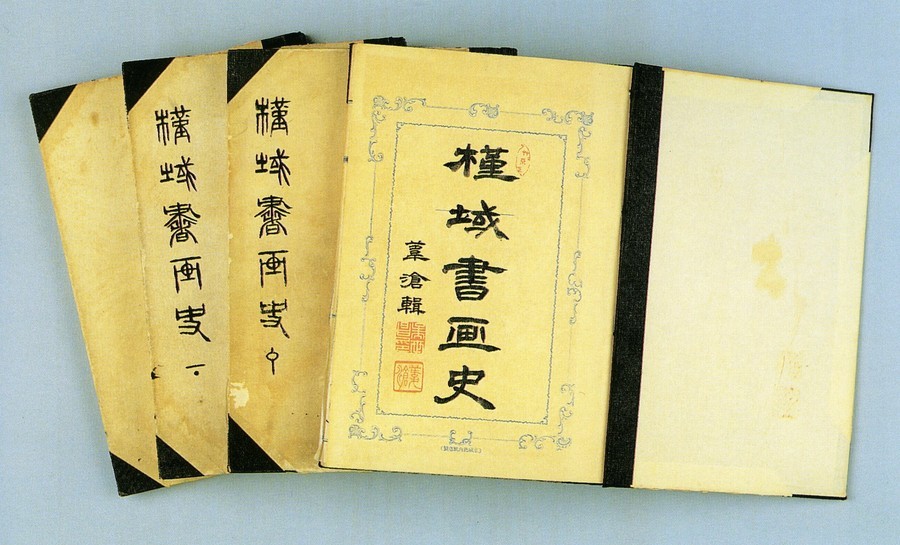 槿域書画史
葦滄輯
葦滄
槿域書画史 中
槿域書画史 下